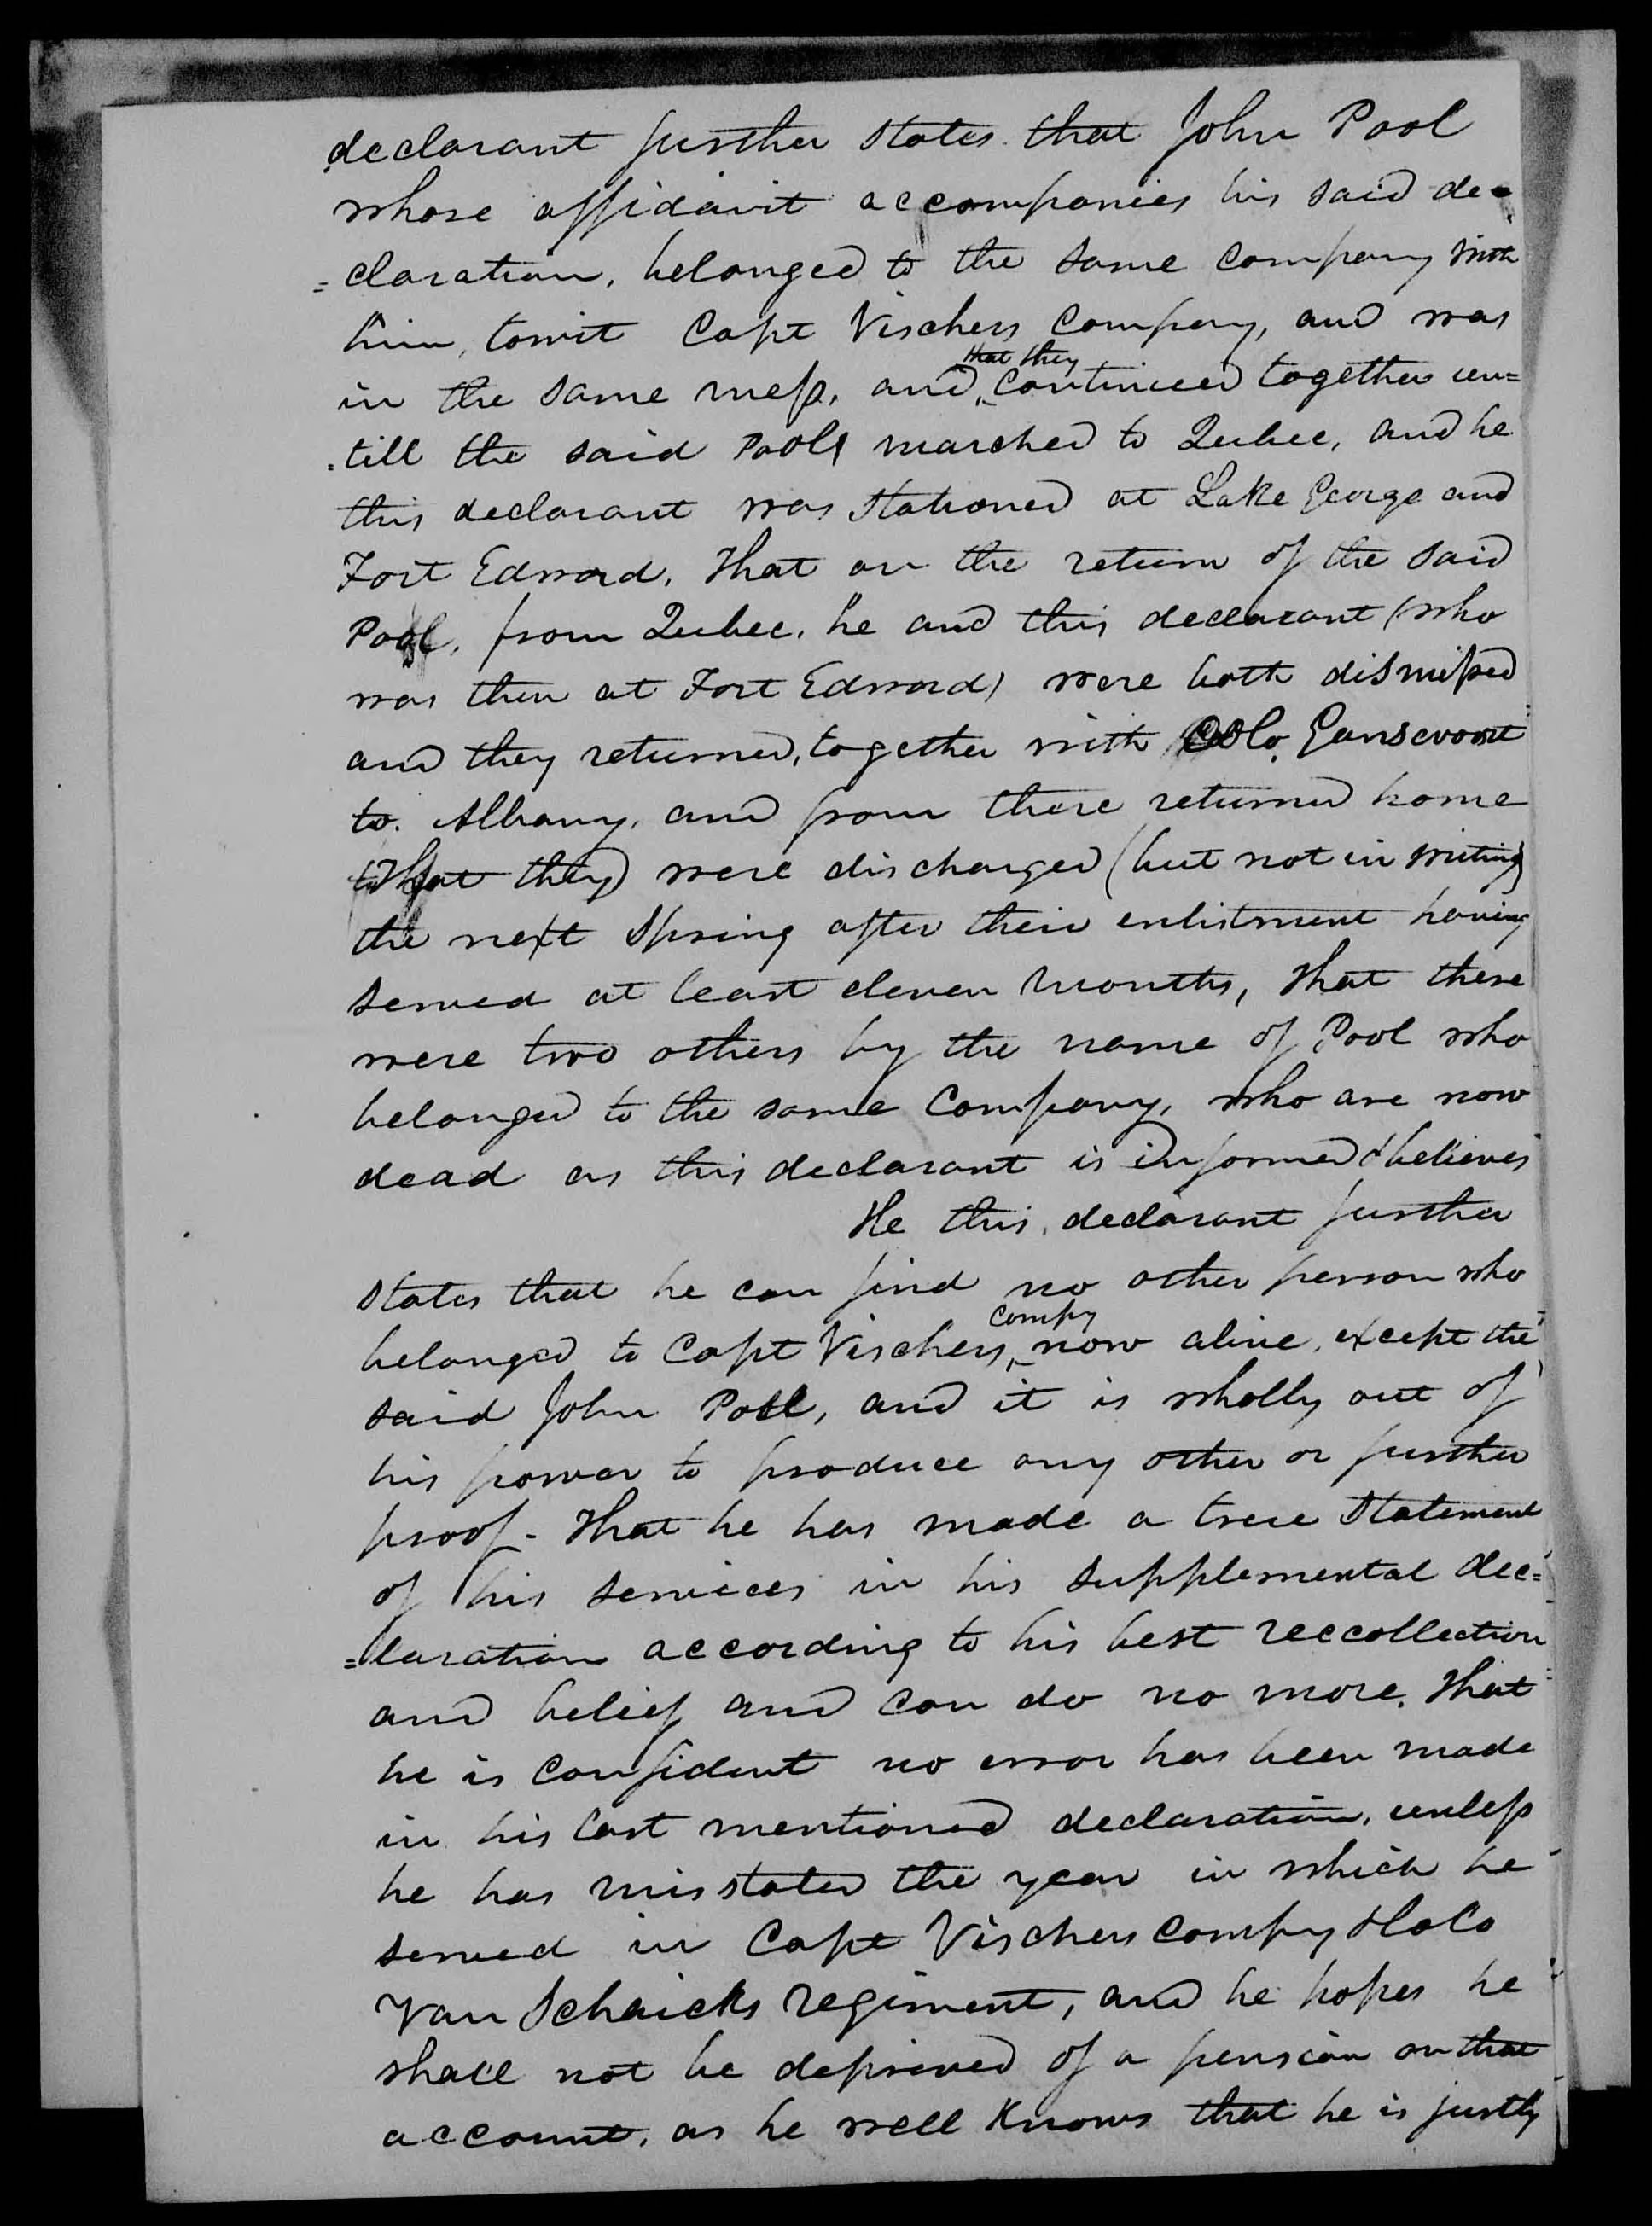 declarant further states that John Pool
whose affidavit accompanies his said de-
=claration, belonged to the same company with
him, towit Capt Vischers Company, and was
that they
in the same mess, and ^ continued together un=
=till the said Pool marched to Qubec, and he
this declarant was stationed at Lake George and
Fort Edward. That on the return of the said
Pool, from Qubec, he and this declarant (who
was then at Fort Edward) were both dismissed
and they returned, together with Colo. Gansevoort
to Albany, and from there returned home
That they were discharged (but not in writing)
the next Spring after their enlistment having
served at least eleven months, That there
were two others by the name of Pool who
belonged to the same Company, who are now
dead as this declarant is informed & believes
He this declarant further
states that he can find no other person who
Compy
belonged to Capt Vischers ^ now alive, except the
said John Pool, and it is wholly out of
his power to produce any other or further
proof - That he has made a true statement
of his services in his supplemental dec=
=laration according to his best reccollection
and belief and can do no more. That
he is confident no error has been made
in his last mentioned declaration, unless
he has misstated the year in which he
served in Capt Vischers Compy & Colo
Van Schaicks regiment, and he hopes he
shall not be deprived of a pension on that
account, as he well knows that he is justly